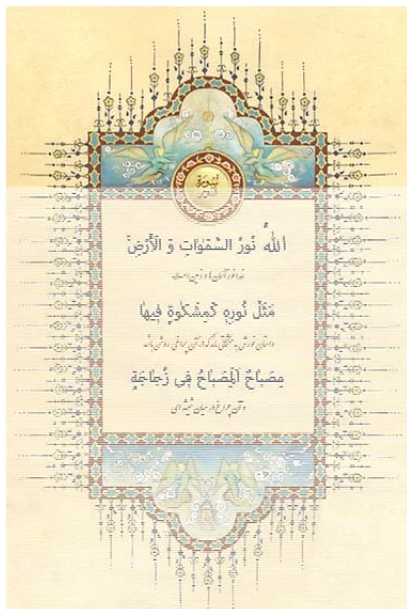 سورة
اَللّٰهُ نُورُ السَّمٰوَاتِ وَ الْأَرْضِ
خدا نور آسمان‌ها و زمین است
مَثَلُ نُورِهِ كَمِشْكٰوةٍ فِيهٰا
داستان نورش به مشکاتی ماند که در آن چراغی روشن باشد
مِصْبٰاحٌ اَلْمِصْبٰاحُ فِي زُجٰاجَةٍ
و آن چراغ در میان شیشه‌ای